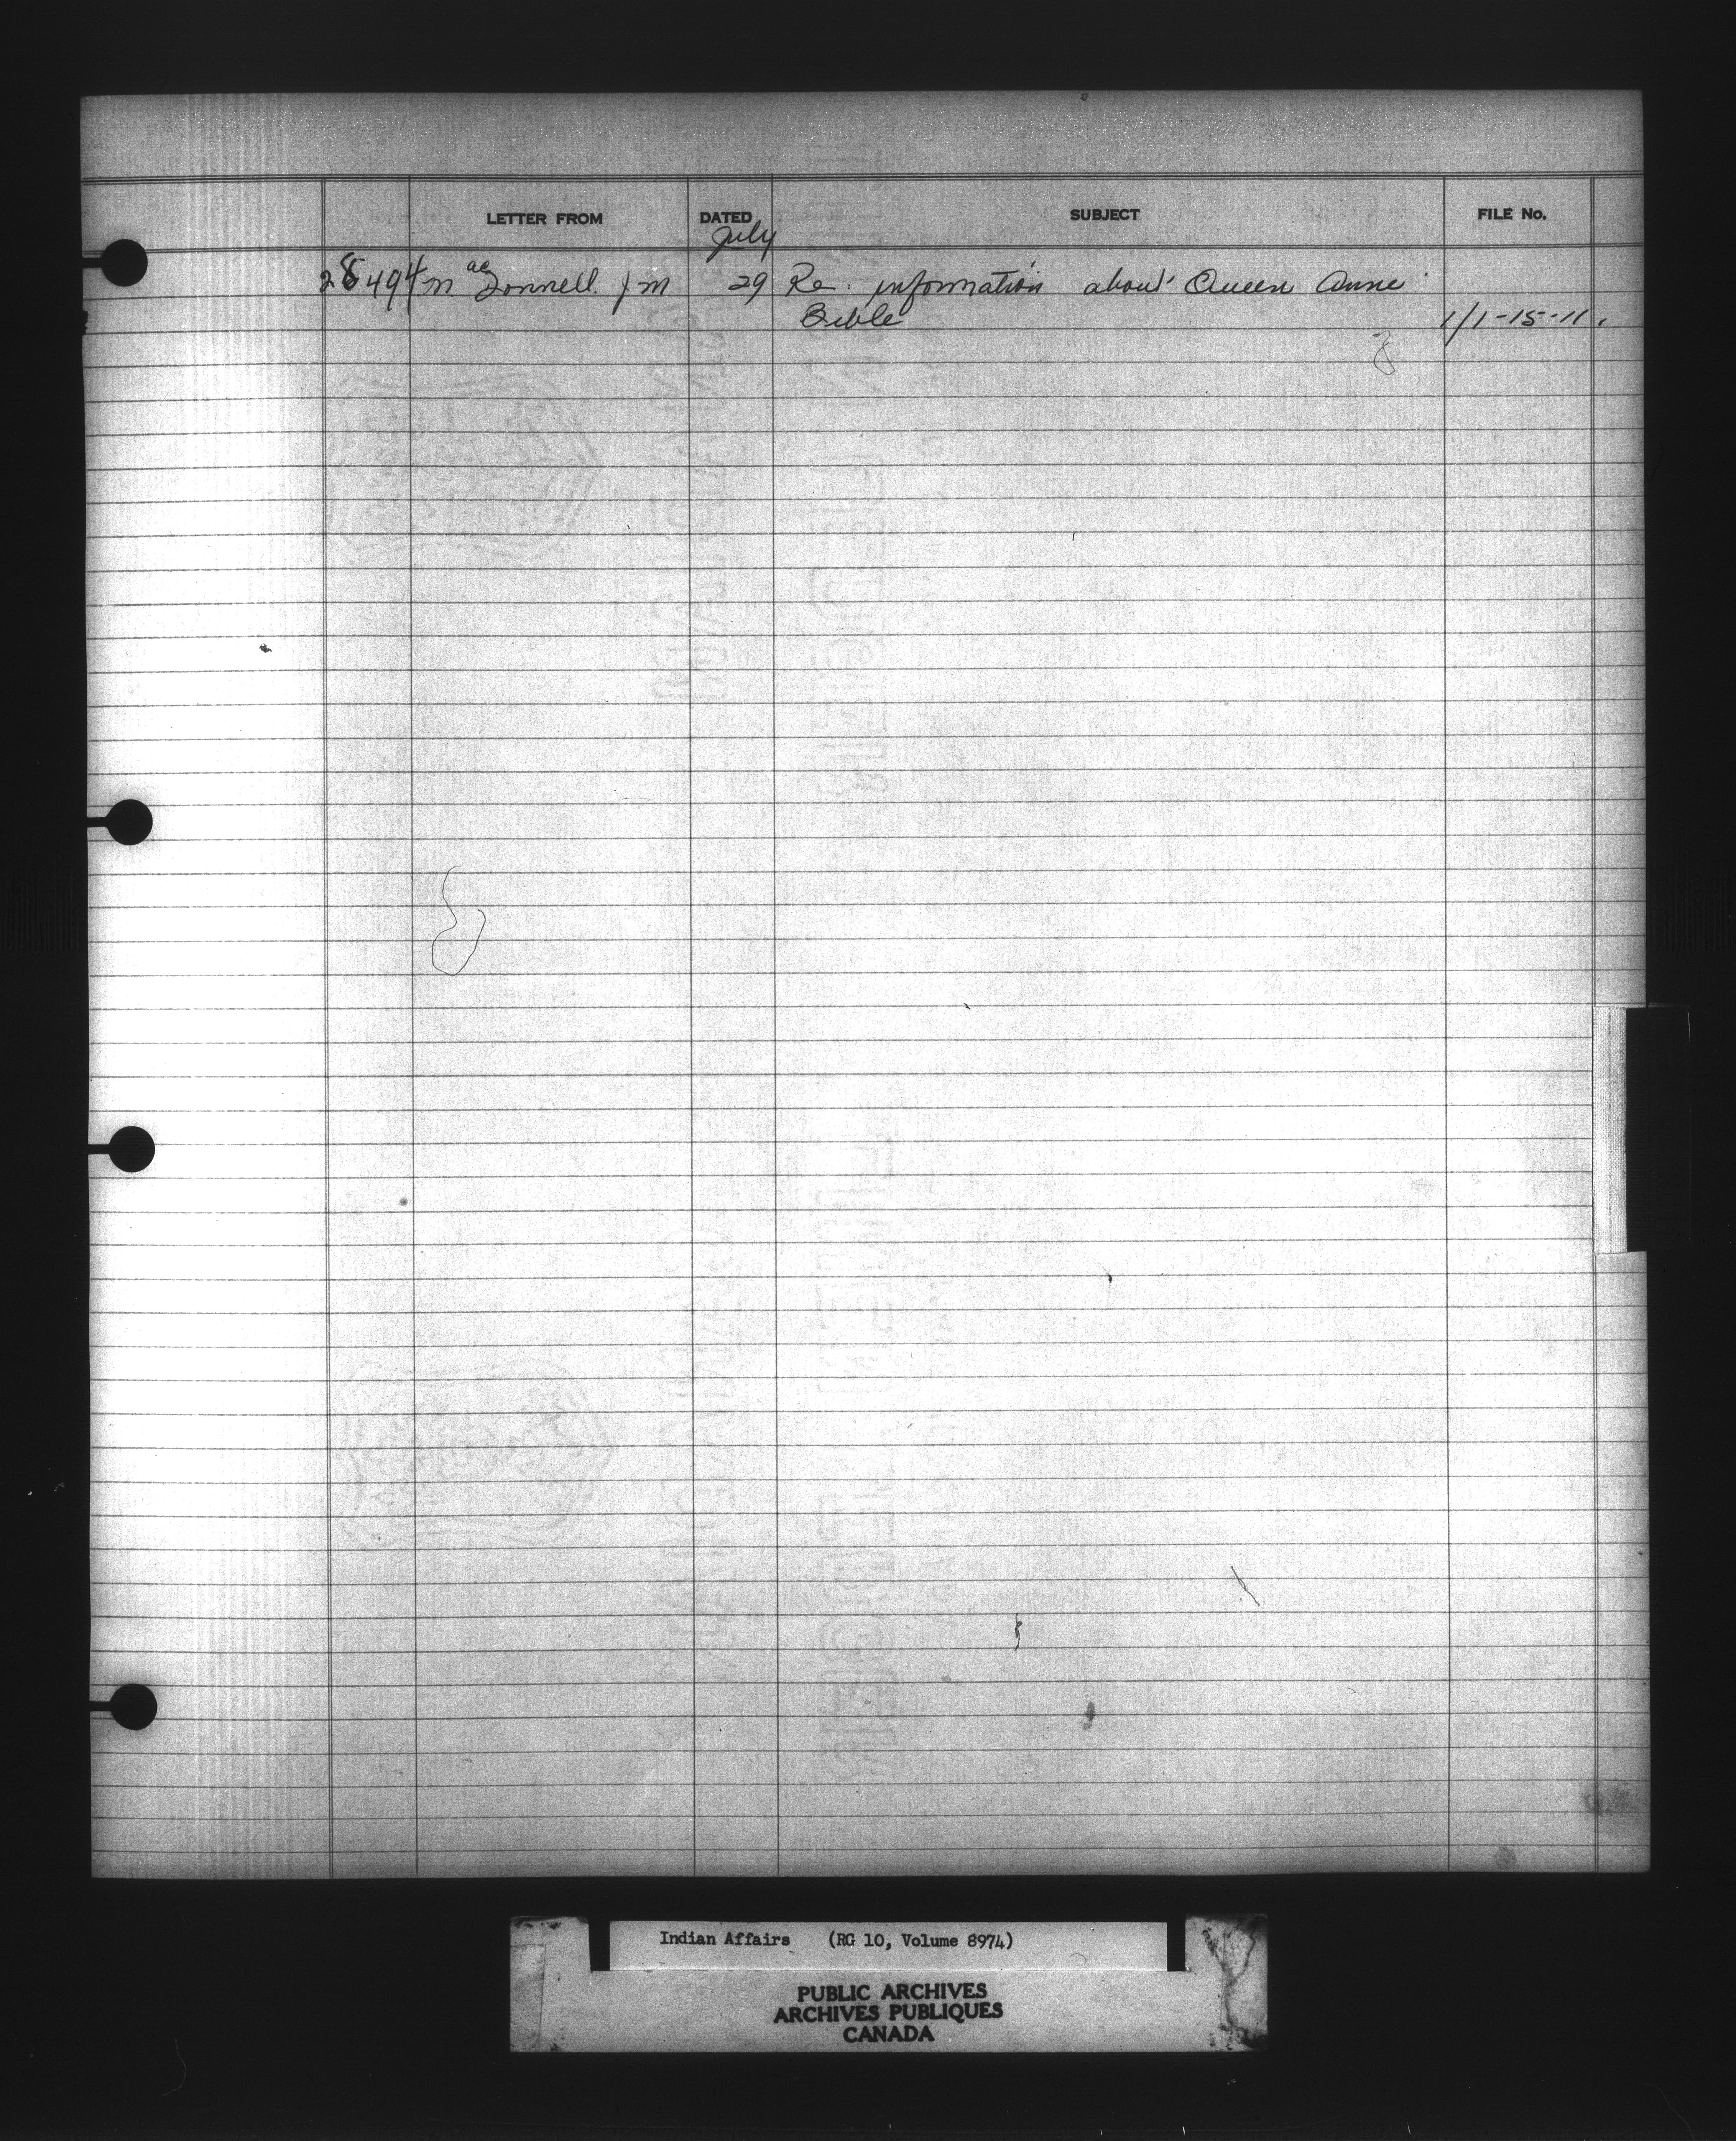 LETTER FROM DATED SUBJECT FILE No.
July
28494 MacDonnell. J M 29 Re: information about Queen Anne
Bible 1/1-15-11.
Indian Affairs (RG 10, Volume 8974)
PUBLIC ARCHIVES
ARCHIVES PUBLIQUES
CANADA